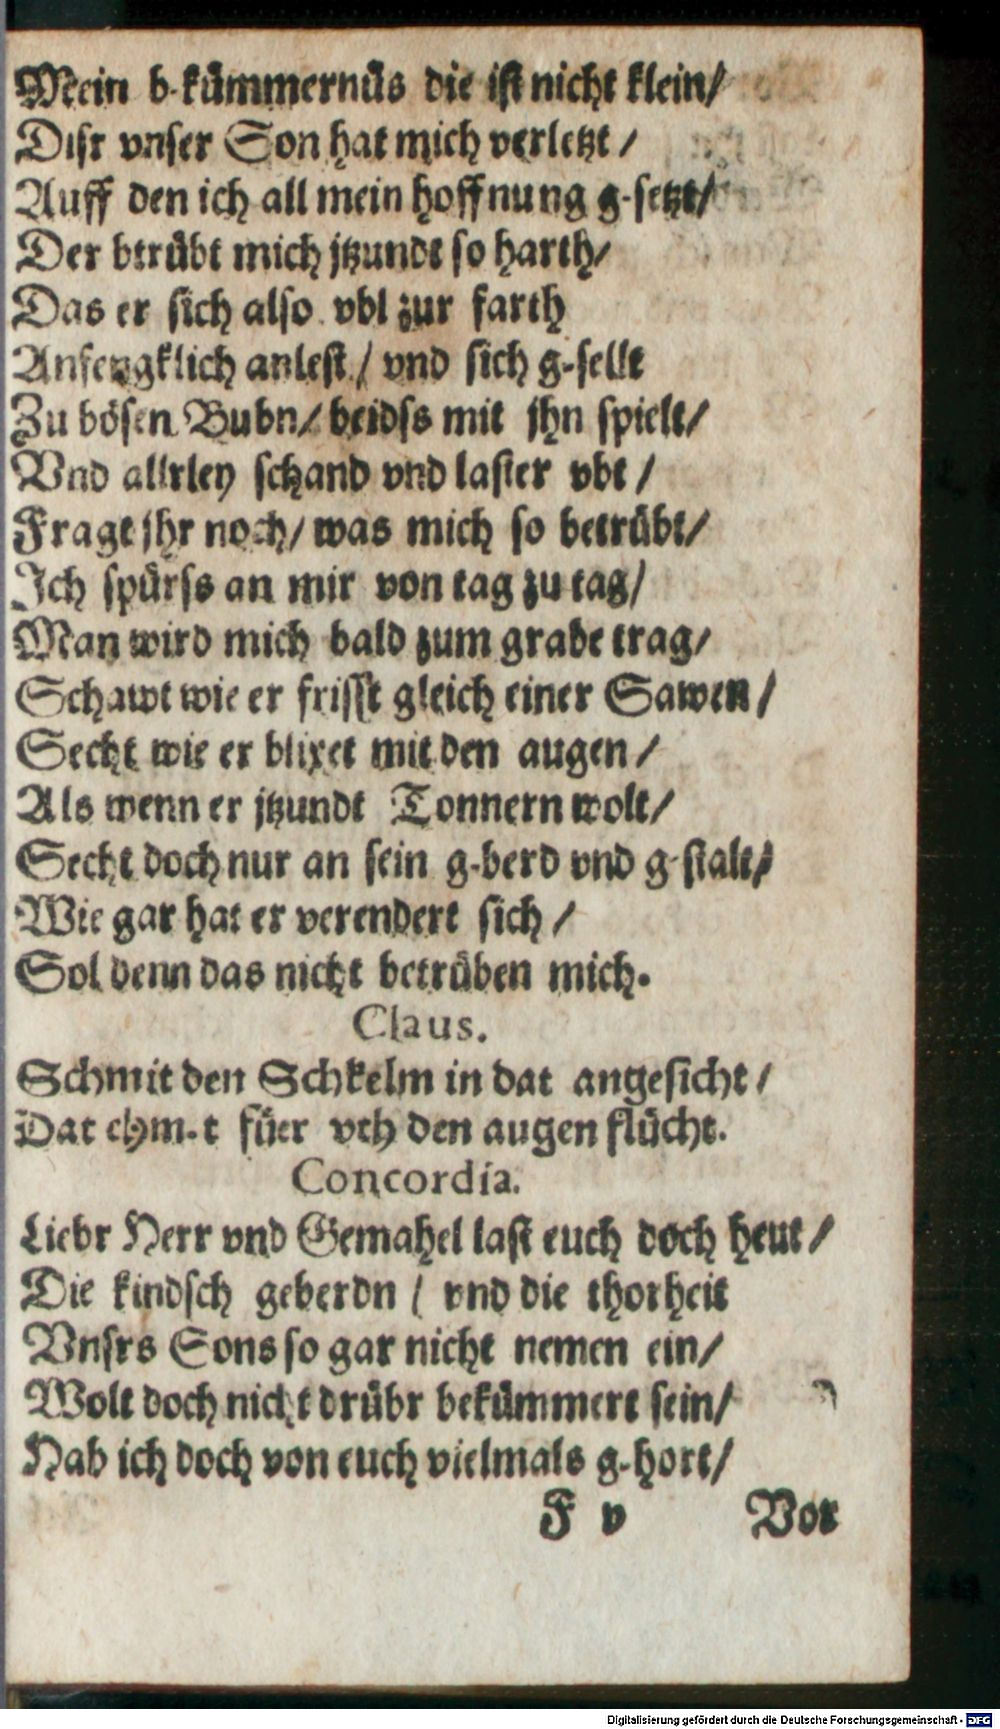 Mein b-kümmernüs die ist nicht klein/
Disr vnser Son hat mich verletzt /
Auff den ich all mein hoffnung g-setzt/
Der btrübt mich jtzundt so harth/
Das er sich also vbl zur farth
Anfengklich anlest / vnd sich g-sellt
Zu bösen Bubn/ beidss mit jhn spielt/
Vnd allrley schand vnd laster vbt /
Fragt jhr noch/ was mich so betrübt/
Ich spürss an mir von tag zu tag/
Man wird mich bald zum grabe trag/
Schawt wie er frisst gleich einer Sawen /
Secht wie er blixet mit den augen /
Als wenn er jtzundt Tonnern wolt/
Secht doch nur an sein g-berd vnd g-stalt/
Wie gar hat er verendert sich /
Sol denn das nicht betrüben mich.
Claus.
Schmit den Schkelm in dat angesicht /
Dat ehm-t füer vth den augen flücht.
Concordia.
Liebr Herr vnd Gemahel last euch doch heut /
Die kindsch geberdn / vnd die thorheit
Vnsrs Sons so gar nicht nemen ein/
Wolt doch nicht drübr bekümmert sein/
Hab ich doch von euch vielmals g-hort/
F v Vor
Digitalisierung gefördert durch die Deutsche Forschungsgemeinschaft - DFG